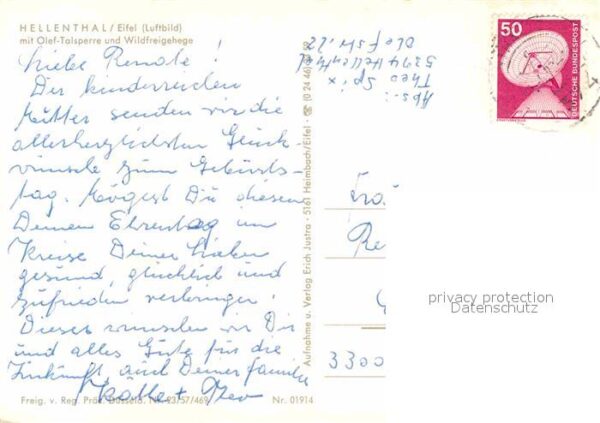 HELLENTHAL/Eifel (Luftbild)
mit Olef-Talsperre und Wildfreigehege
Liebe Renate!
Der kinderreichen
Mutter senden wir die
allerherzlichsten Glück-
wünsche zum Geburts-
tag. Mögest Du diesen
Deinen Ehrentag im
Kreise Deiner Lieben
gesund, glücklich und
zufrieden verbringen!
Dieses wünschen wir Dir
und alles Gute für die
Zukunft, auch Deiner Familie
Käthe + Theo
Freig. v. Reg. Präs. Düsseld. Nr. 23/57/469
Nr. 01914
Aufnahme u. Verlag Erich Justra · 5161 Heimbach/Eifel ☎ (0 24 46)
Abs.:
Theo Spix
5374 Hellenthal
Olefstr. 22
50
DEUTSCHE BUNDESPOST
Re
3300
privacy protection
Datenschutz